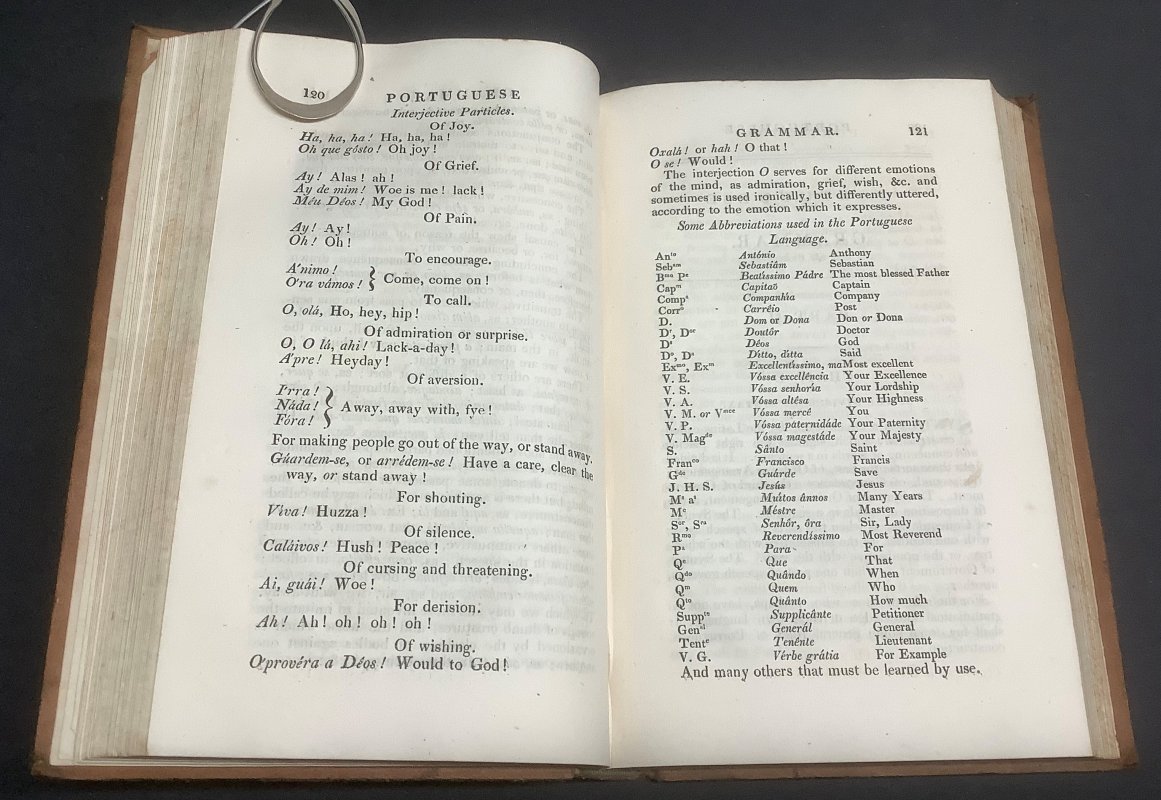 120 PORTUGUESE
Interjective Particles.
Of Joy.
Ha, ha, ha! Ha, ha, ha!
Oh que gósto! Oh joy!
Of Grief.
Ay! Alas! ah!
Ay de mim! Woe is me! lack!
Méu Déos! My God!
Of Pain.
Ay! Ay!
Oh! Oh!
To encourage.
A'nimo!
O'ra vámos! } Come, come on!
To call.
O, olá, Ho, hey, hip!
Of admiration or surprise.
O, O lá, ahi! Lack-a-day!
A'pre! Heyday!
Of aversion.
I'rra!
Náda! } Away, away with, fye!
Fóra!
For making people go out of the way, or stand away.
Gúardem-se, or arrédem-se! Have a care, clear the
way, or stand away!
For shouting.
Víva! Huzza!
Of silence.
Caláivos! Hush! Peace!
Of cursing and threatening.
Ai, guái! Woe!
For derision.
Ah! Ah! oh! oh! oh!
Of wishing.
O'provéra a Déos! Would to God!
GRAMMAR. 121
Oxalá! or hah! O that!
O se! Would!
The interjection O serves for different emotions
of the mind, as admiration, grief, wish, &c. and
sometimes is used ironically, but differently uttered,
according to the emotion which it expresses.
Some Abbreviations used in the Portuguese
Language.
Anto António Anthony
Sebam Sebastiám Sebastian
Bmo Pe Beatíssimo Pádre The most blessed Father
Capm Capitaõ Captain
Compa Companhía Company
Corro Carréio Post
D. Dom or Dona Don or Dona
Dr, Dor Doutôr Doctor
Ds Déos God
Do, Da Dítto, dítta Said
Exmo, Exm Excellentíssimo, ma Most excellent
V. E. Vóssa excelléncia Your Excellence
V. S. Vóssa senhoría Your Lordship
V. A. Vóssa altésa Your Highness
V. M. or Vmce Vóssa mercé You
V. P. Vóssa paternidáde Your Paternity
V. Magde Vóssa magestáde Your Majesty
S. Sânto Saint
Franco Francisco Francis
Gde Guárde Save
J. H. S. Jesús Jesus
Ms as Muítos ânnos Many Years
Me Méstre Master
Sor, Sra Senhór, óra Sir, Lady
Rmo Reverendíssimo Most Reverend
Pa Para For
Qe Que That
Qdo Quándo When
Qm Quem Who
Qto Quánto How much
Suppte Supplicânte Petitioner
Genal Generál General
Tente Tenénte Lieutenant
V. G. Vérbe grátia For Example
And many others that must be learned by use.